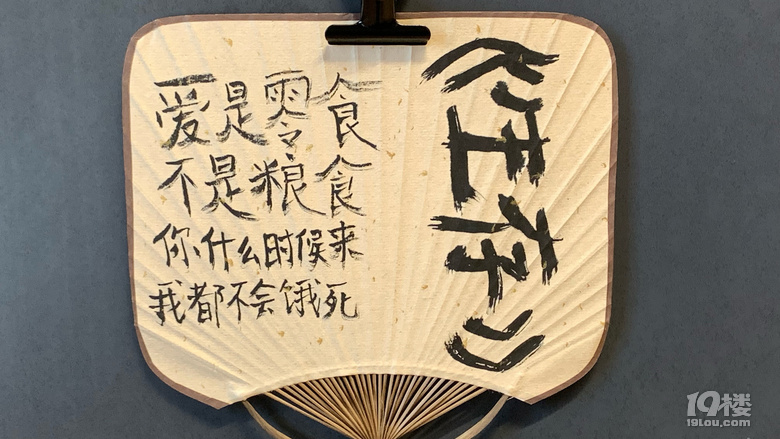 《生存》
爱是零食
不是粮食
你什么时候来
我都不会饿死
19楼
19lou.com